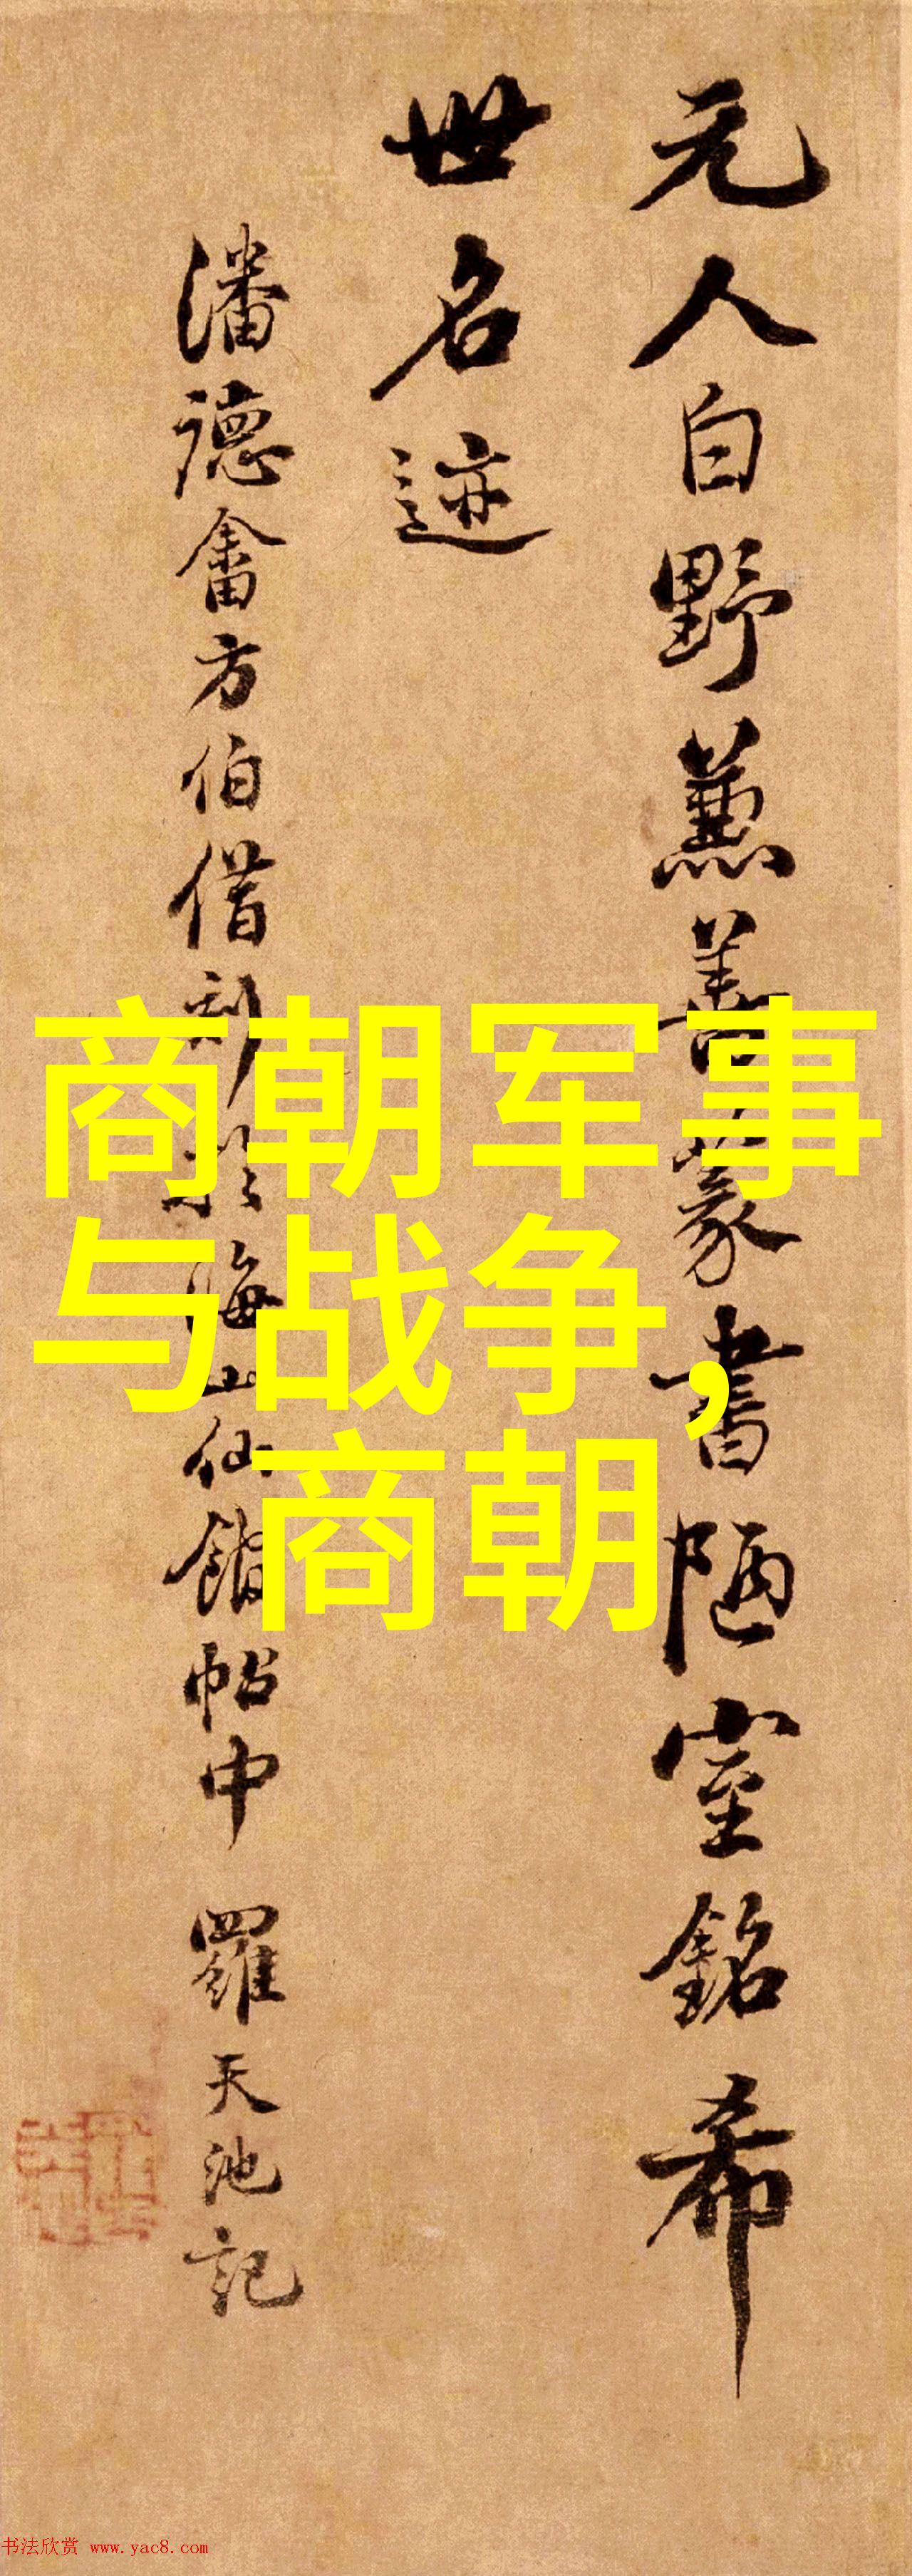 元人白野兼善篆書陋室銘希
世名迹
潘德畬方伯借刻於海山仙館帖中 羅天池記
商朝军事
与战争，
商朝
书法欣赏 www.yac8.com